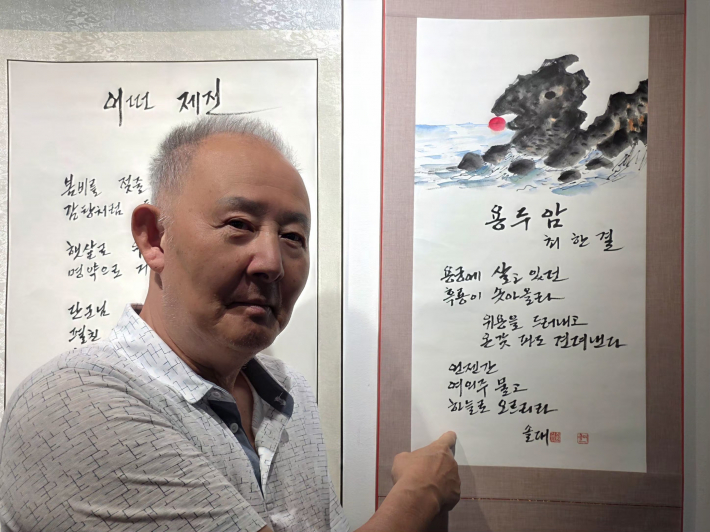 어떤 제전
봄비를 젖줄
감탕처럼
햇살로
명약으로
단군님
펼친
용두암
최한결
용궁에 살고 있던
흑룡이 솟아올라
위용을 드러내고
온갖 파도 견뎌낸다
언젠간
여의주 물고
하늘로 오르리라
솔대